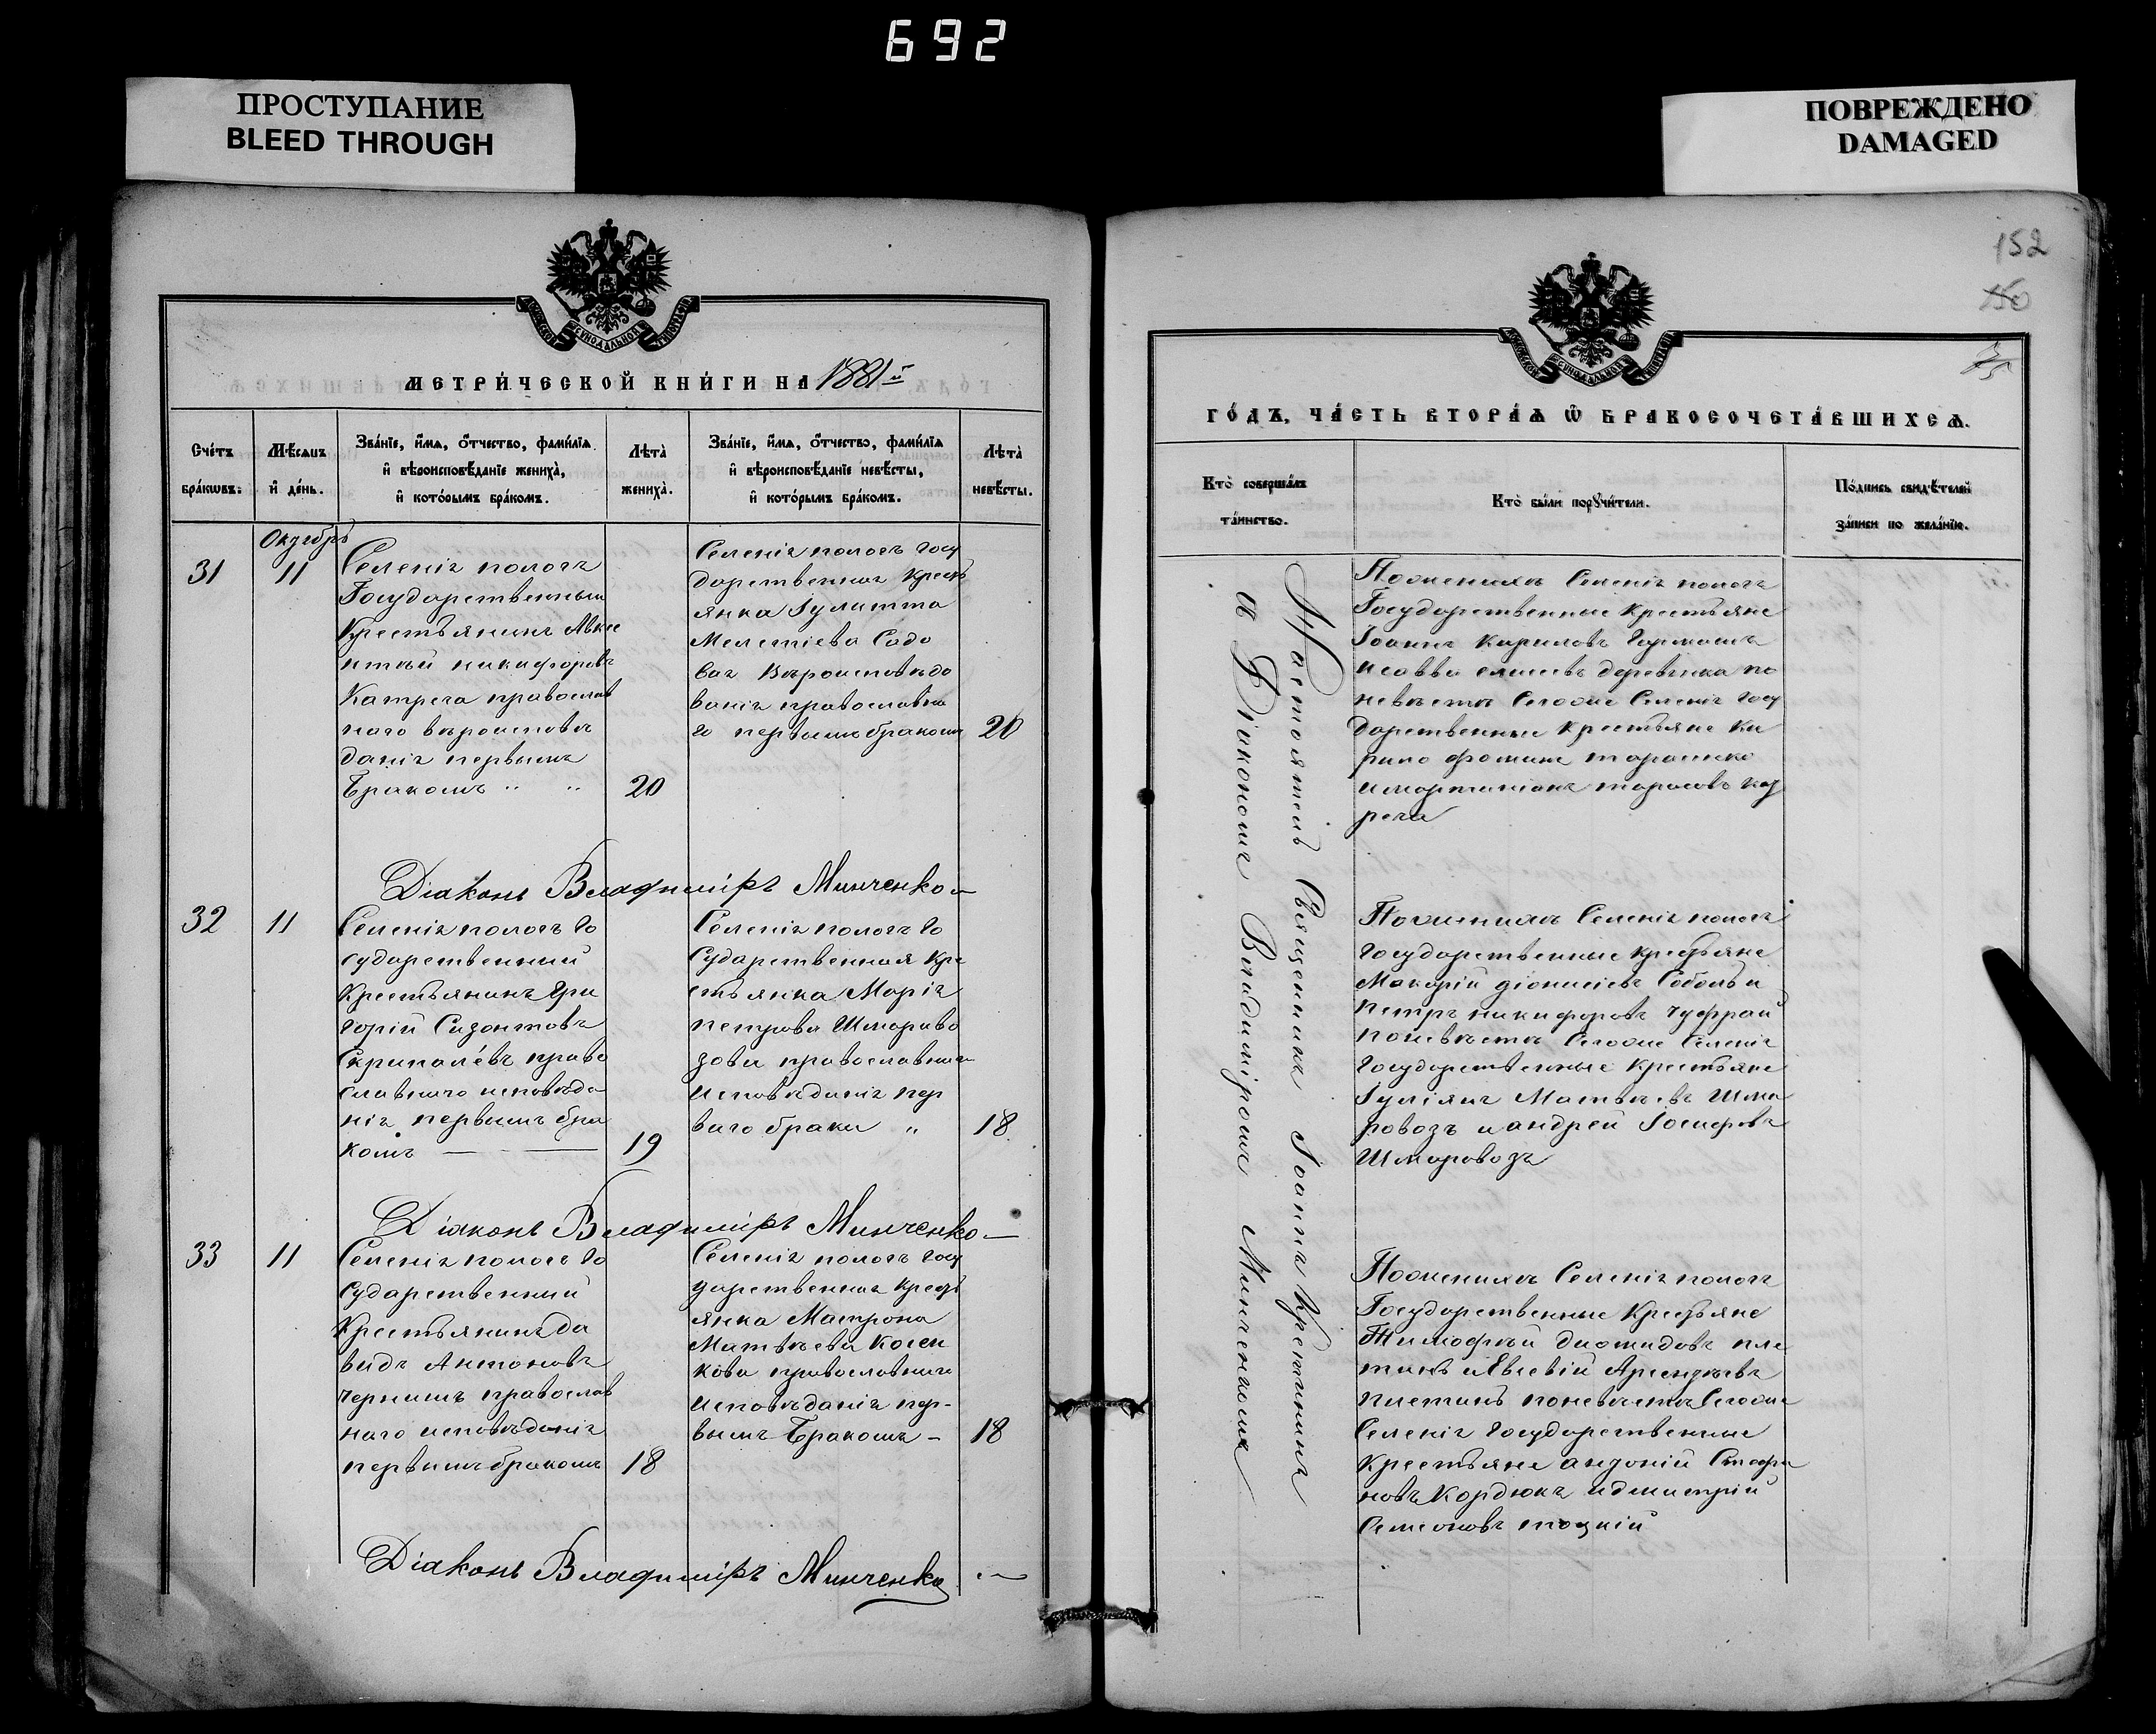 692
ПРОСТУПАНИЕ
BLEED THROUGH
ПОВРЕЖДЕНО
DAMAGED
152
150
МЕТРИ́ЧЕСКОЙ КНИ́ГИ НА 1881й
Сче́тъ бра́кωвъ:
Мѣ́сяцъ и҆ де́нь.
Зва́нїе, и҆́мѧ, ѻ҆́тчество, фами́лїѧ
и҆ вѣроисповѣ́данїе жениха̀,
и҆ кото́рымъ бра́комъ.
Лѣта̀ жениха̀.
Зва́нїе, и҆́мѧ, ѻ҆́тчество, фами́лїѧ
и҆ вѣроисповѣ́данїе невѣ́сты,
и҆ кото́рымъ бра́комъ.
Лѣта̀ невѣ́сты.
Октябрь
31
11
Селенія пологъ
Государственный
Крестьянинъ Авксе
нтій никифоровъ
Катрега православ
наго вѣроисповѣ
данія первымъ
Бракомъ
20
Селенія пологъ госу
дарственная Кресть
янка Іулитта
Мелетіева Садо
вая Вѣроисповѣдо
ванія православна
го первымъ бракомъ
20
Діаконъ Владиміръ Минченко
32
11
Селенія пологъ Го
сударственный
Крестьянинъ Гри
горій Сизонтовъ
Скрипалёвъ право
славнаго исповѣда
нія первымъ бра
комъ
19
Селенія пологъ Го
Сударственная Кре
стьянка Марія
петрова Шмарово
зова православнаго
исповѣданія пер
ваго брака
18
Діаконъ Владиміръ Минченко
33
11
Селенія пологъ Го
Сударственный
Крестьянинъ Да
видъ Антоновъ
Чернышъ православ
наго исповѣданія
первымъ бракомъ
18
Селенія пологъ госу
дарственная Кресть
янка Матрона
Матвѣева Косен
кова православнаго
исповѣданія пер-
вымъ Бракомъ
18
Діаконъ Владиміръ Минченко
ГО́ДЪ, ЧА́СТЬ ВТОРА́Ѧ Ѽ БРАКОСОЧЕТА́ВШИХСѦ.
Кто̀ соверша́лъ
та́инство.
Кто̀ бы́ли порꙋчи́тели.
По́дпись свидѣ́телей
за́писи по жела́нїю.
Настоятель Священникъ Іоаннъ
и Діакономъ Владиміромъ Минченкомъ
Поженихѣ Селенія пологъ
Государственные Крестьяне
Іоаннъ Кириловъ
исавва
невѣстѣ Сегоже Селенія Госу
дарственные Крестьяне Ки
рило фоминъ
имартиніанъ тарасовъ
Поженихѣ Селенія пологъ
Государственные крестьяне
Макарій діонисіевъ Соболь и
петръ никифоровъ
поневѣстѣ Сегоже Селенія
Государственные Крестьяне
Іуліянъ Матвѣевъ Шма
ровозъ и андрей Іосифовъ
Шмаровозъ
Поженихѣ Селенія пологъ
Государственные Крестьяне
Тимофѣй диомидовъ пле
тинь иЕвсевій
плетинь поневѣстѣ Сегоже
Селенія Государственные
Крестьяне андоній Стефа
новъ Кордюкъ идимитрій
Семеоновъ